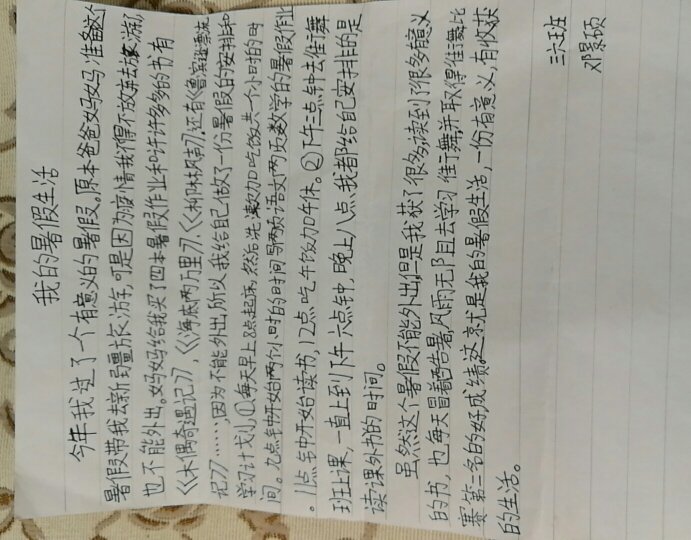 我的暑假生活
今年我过了个有意义的暑假。原本爸爸妈妈准备这个
暑假带我去新疆旅游,可是因为疫情我不得不放弃去旅游,
也不能外出。妈妈给我买了四本暑假作业和许许多多的书有
《木偶奇遇记》,《海底两万里》、《柳林风声》,还有《鲁滨逊漂流
记》……,因为不能外出,所以我给自己做了一份暑假的安排和
学习计划,①每天早上8点起床,然后洗漱加吃饭共个小时的时
间。九点钟开始两个小时的时间写两页语文两页数学的暑假作业
。11点钟开始读书,12点吃午饭加午休。②下午三点钟去街舞
班上课,一直上到下午六点钟,晚上八点我都给自己安排的是
读课外书的时间。
虽然这个暑假不能外出,但是我获了很多,读到了很多有意义
的书,也每天冒着酷暑,风雨无阻去学习街舞,并取得街舞比
赛第三名的好成绩。这就是我的暑假生活,一份有意义,有收获
的生活。
三六班
邓景硕